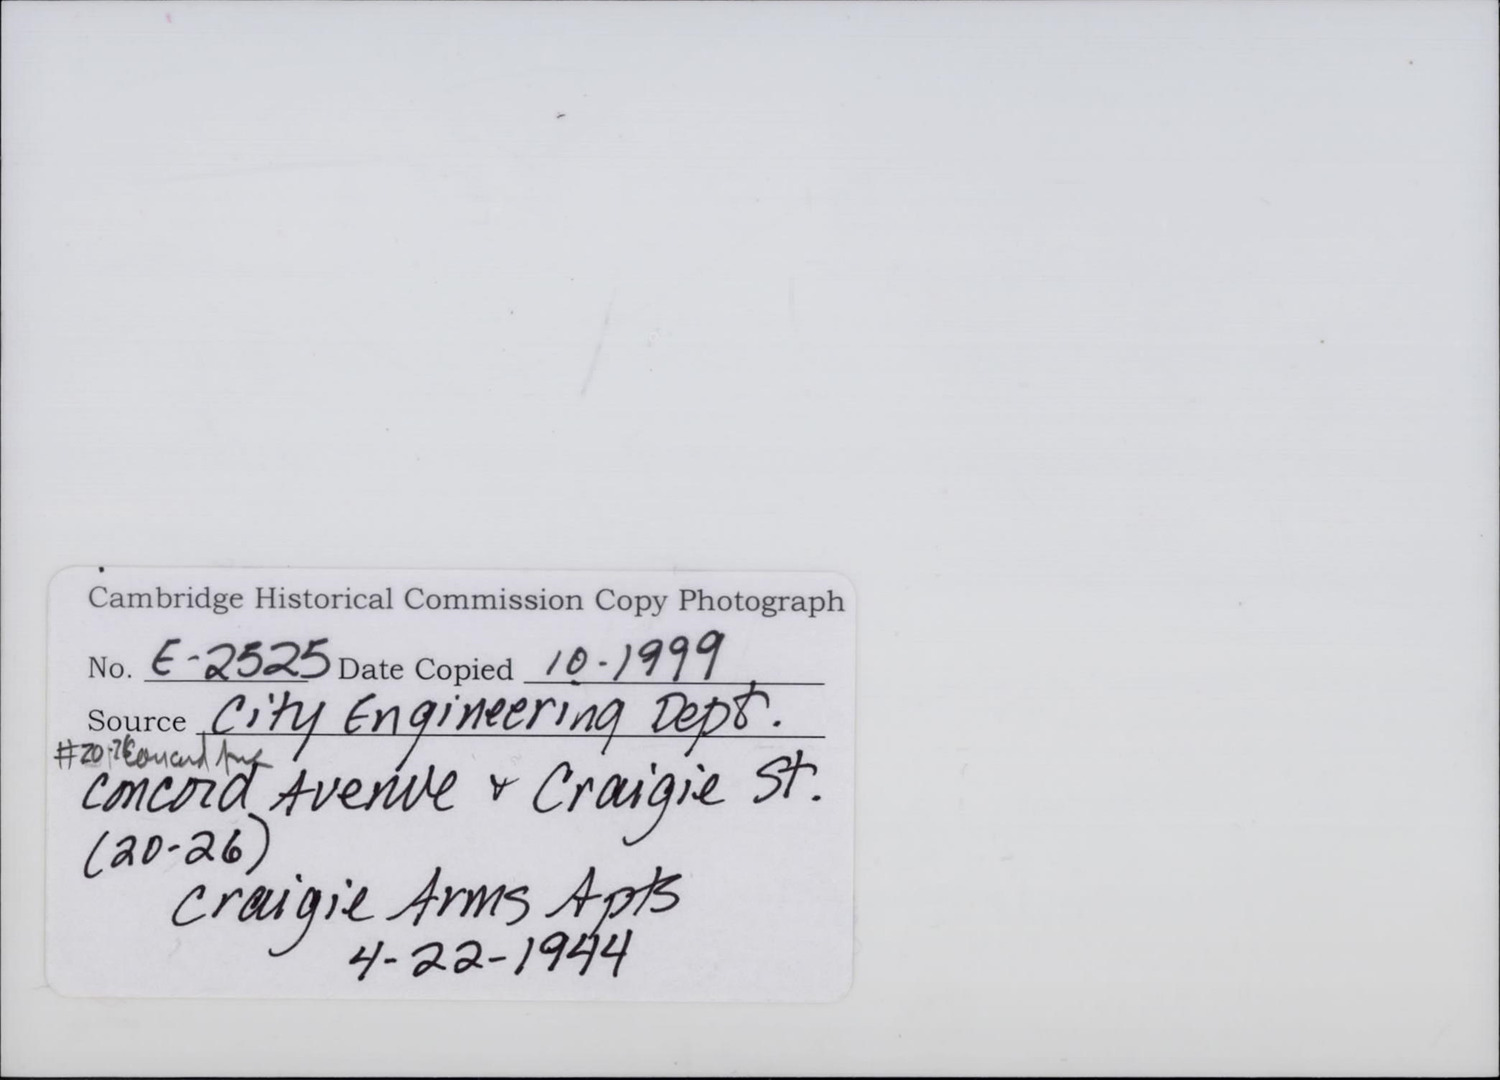 Cambridge Historical Commission Copy Photograph
No. E-2525 Date Copied 10-1999
Source City Engineering Dept.
#20-26 Concord Ave
Concord Avenue & Craigie St.
(20-26)
Craigie Arms Apts
4-22-1944